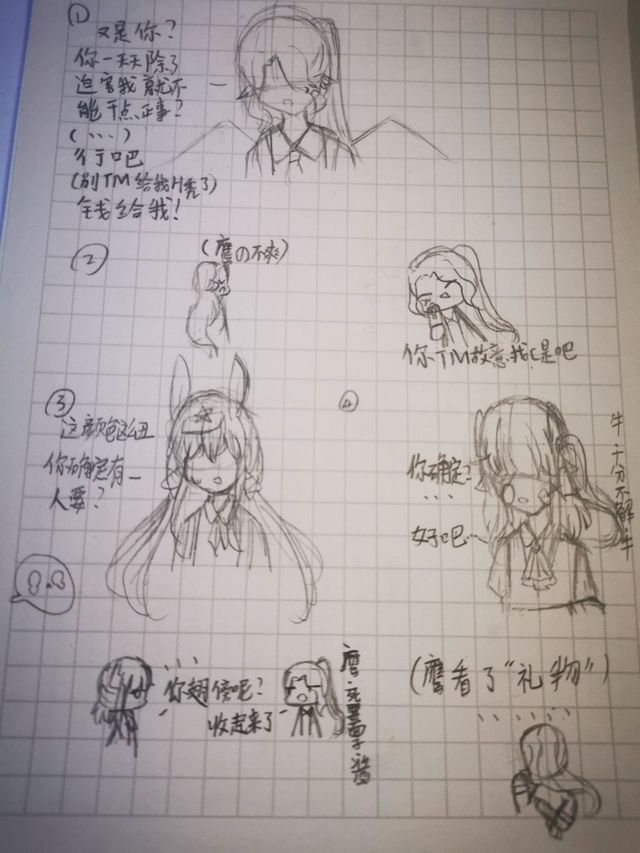 ①
又是你？
你一天天除了
迫害我就不
能干点正事？
(...)
行吧
(别TM给我H秃了)
钱给我！
②
(鹰の不爽)
你TM故意找C是吧
③
这颜色这么丑
你确定有
人要？
④
你确定？
...
好吧...
牛十分不解牛
你翅傍呢？
收起来了
鹰
(鹰看了“礼物”)